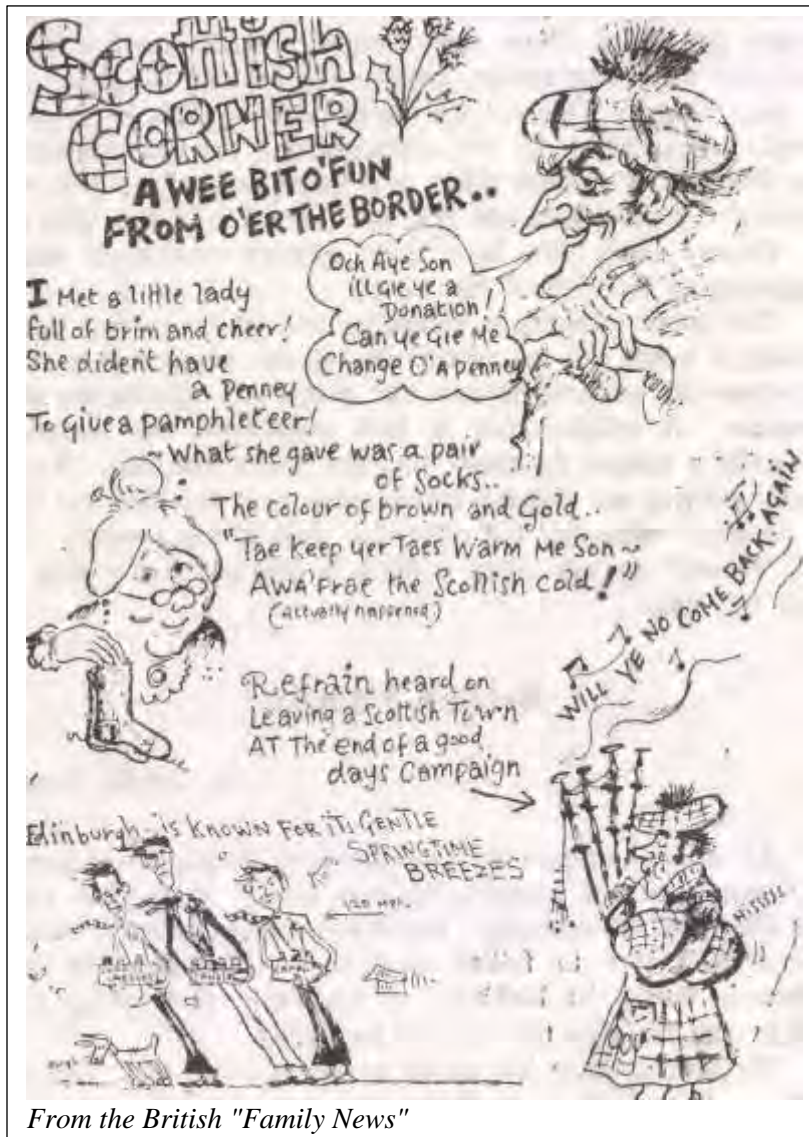 Scottish
CORNER
A WEE BIT O' FUN
FROM O'ER THE BORDER..
Och Aye Son
ill Gie ye a
Donation!
Can ye Gie Me
Change O' A Penney
I Met a little lady
full of brim and cheer!
She dident have
a Penney
To give a pamphleteer!
~What she gave was a pair
of Socks..
The colour of brown and Gold..
"Tae keep yer Taes Warm Me Son~
AWA' Frae the Scottish Cold!"
(actually happened)
WILL YE NO COME BACK AGAIN
Refrain heard on
Leaving a Scottish Town
AT The end of a good
days Campaign
Edinburgh~ is KNOWN FOR ITS GENTLE
SPRINGTIME
BREEZES
120 MPH
From the British "Family News"